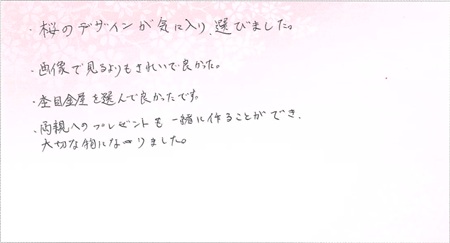 ・桜のデザインが気に入り、選びました。
・画像で見るよりもきれいで良かった。
・杢目金屋を選んで良かったです。
・両親へのプレゼントも一緒に作ることができ、
大切な物になりました。